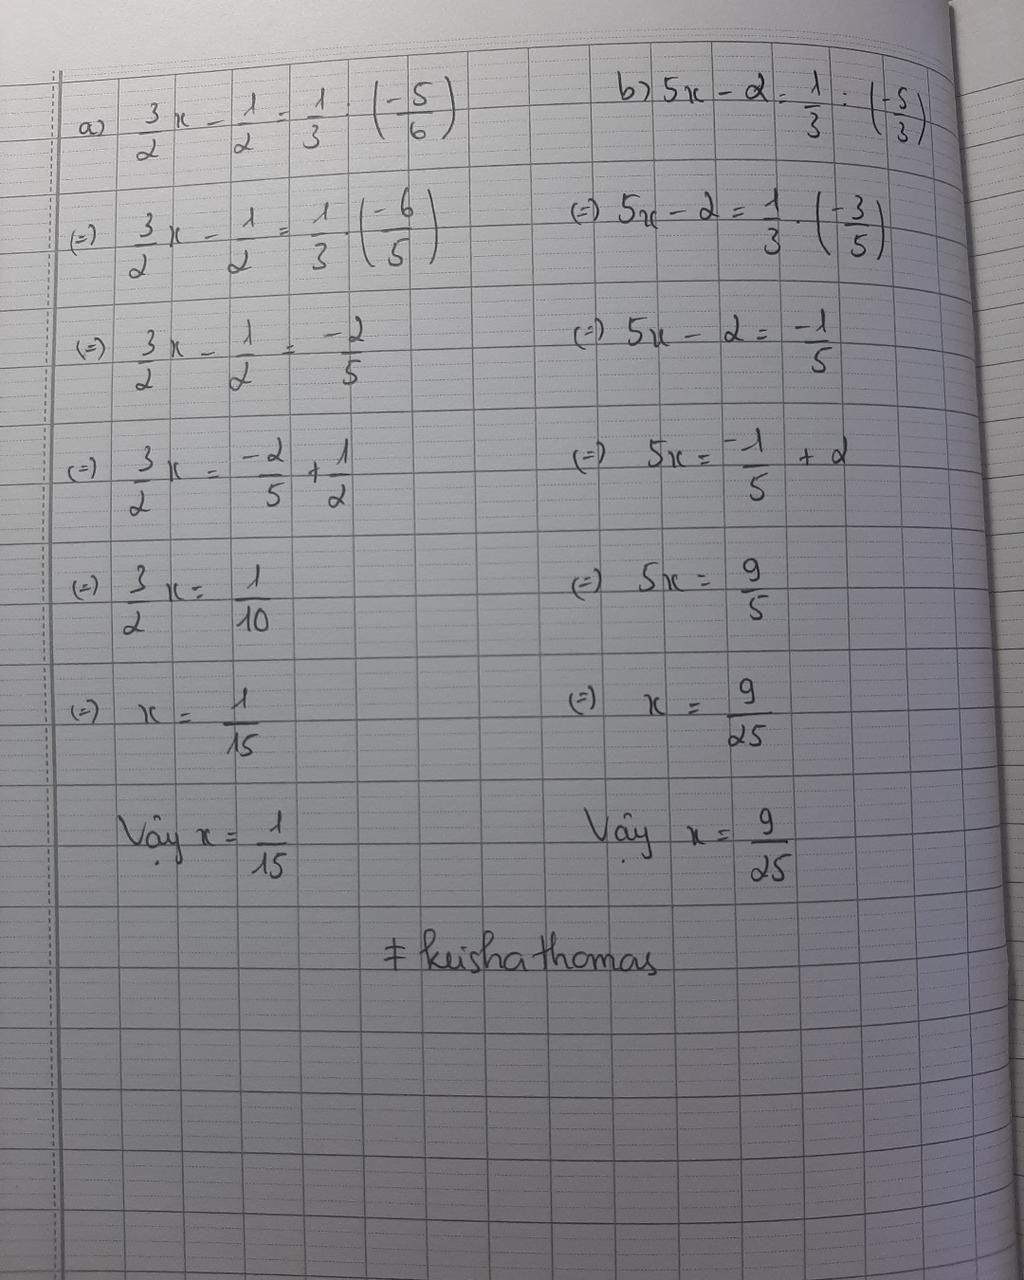 a) 3/2 x - 1/2 = 1/3 : (-5/6)
(=) 3/2 x - 1/2 = 1/3 . (-6/5)
(=) 3/2 x - 1/2 = -2/5
(=) 3/2 x = -2/5 + 1/2
(=) 3/2 x = 1/10
(=) x = 1/15
Vậy x = 1/15
b) 5x - 2 = 1/3 : (-5/3)
(=) 5x - 2 = 1/3 . (-3/5)
(=) 5x - 2 = -1/5
(=) 5x = -1/5 + 2
(=) 5x = 9/5
(=) x = 9/25
Vậy x = 9/25
# keishathomas